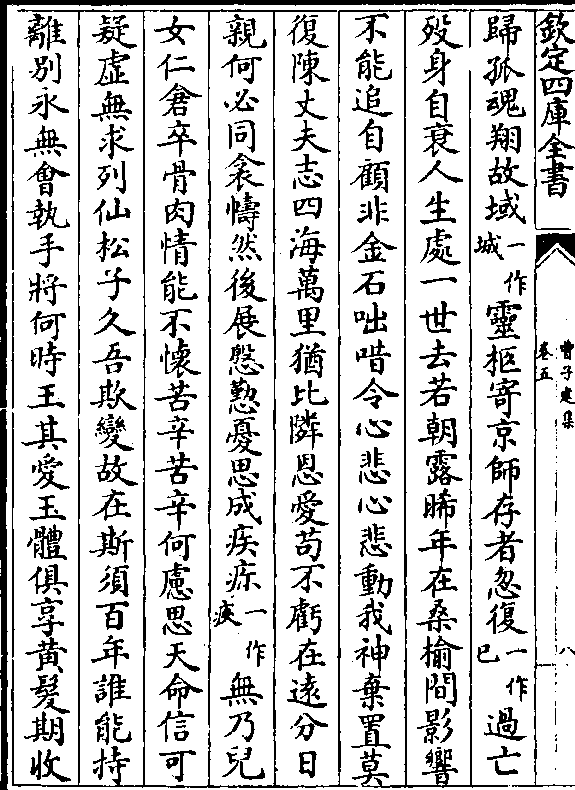 欽定四庫全書
曹子建集
卷五
八
歸孤魂翔故域一作城靈柩寄京師存者忽復一作已過亡
殁身自衰人生處一世去若朝露晞年在桑榆間影響
不能追自顧非金石咄唶令心悲心悲動我神棄置莫
復陳丈夫志四海萬里猶比隣恩愛苟不虧在遠分日
親何必同衾幬然後展慇懃憂思成疾疢一作疹無乃兒
女仁倉卒骨肉情能不懷苦辛苦辛何慮思天命信可
疑虛無求列仙松子久吾欺變故在斯須百年誰能持
離別永無會執手將何時王其愛玉體俱享黃髮期收